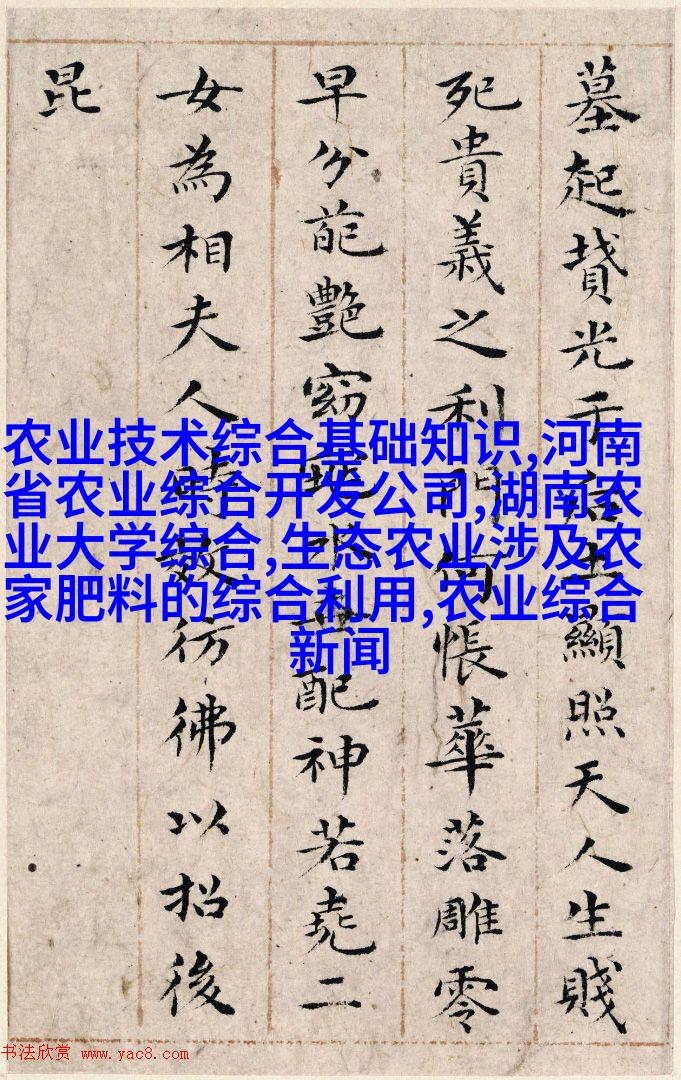 墓起墳光于后土顯照天人生賤
死貴義之利門何悵華落雕零
早分葩艷窈窕永世配神若堯二
女為相夫人時效彷彿以招後
昆
农业技术综合基础知识,河南
省农业综合开发公司,湖南农
业大学综合,生态农业涉及农
家肥料的综合利用,农业综合
新闻
书法欣赏 www.yac8.com